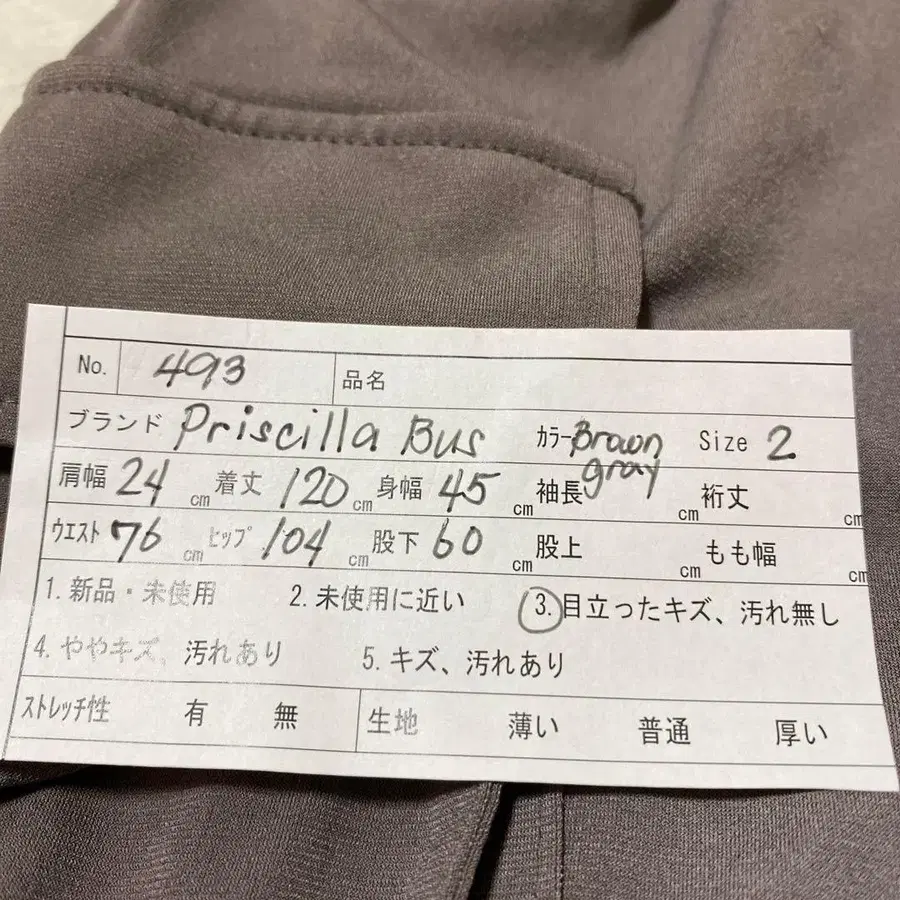 No. 493 品名
ブランド Priscilla Bus カラー Brown gray Size 2
肩幅 24 cm 着丈 120 cm 身幅 45 cm 袖長 cm 裄丈 cm
ウエスト 76 cm ヒップ 104 cm 股下 60 cm 股上 cm もも幅 cm
1. 新品・未使用 2. 未使用に近い 3. 目立ったキズ、汚れ無し
4. ややキズ、汚れあり 5. キズ、汚れあり
ストレッチ性 有 無 生地 薄い 普通 厚い